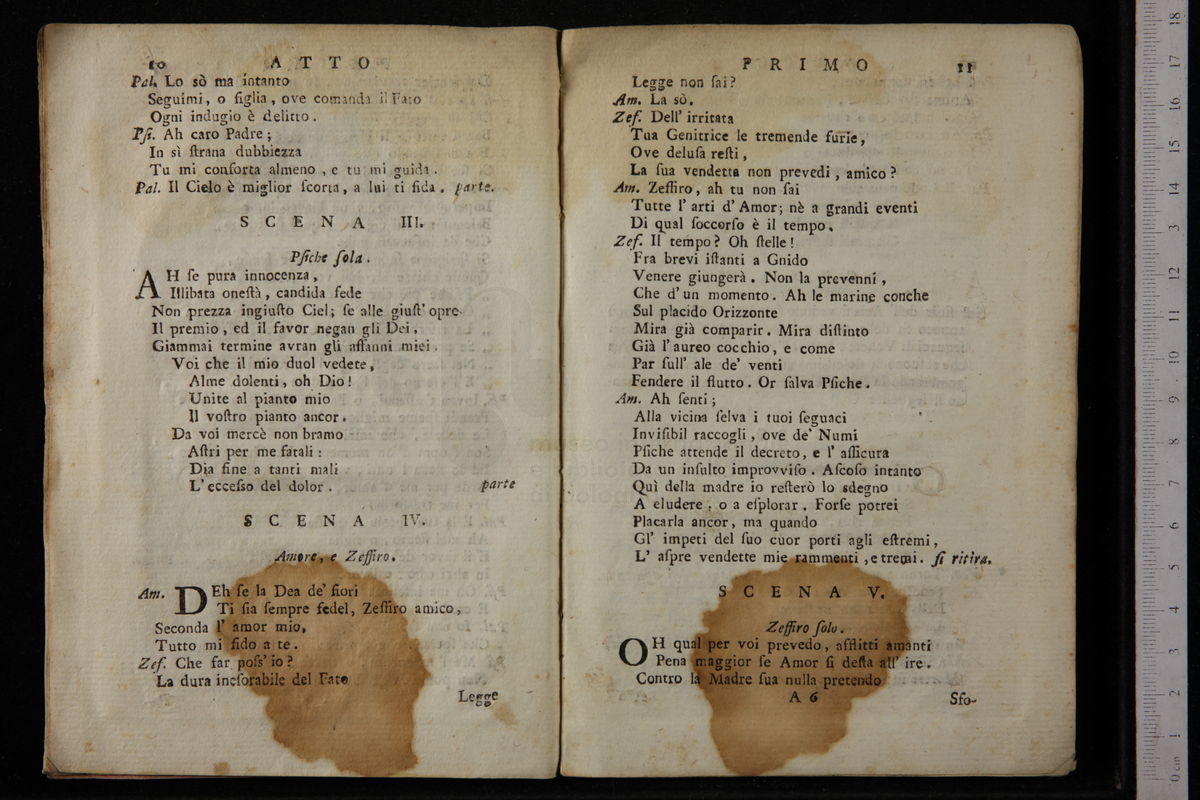 10 ATTO
Pal. Lo sò ma intanto
Seguimi, o figlia, ove comanda il Fato
Ogni indugio è delitto.
Psi. Ah caro Padre;
In sì ſtrana dubbiezza
Tu mi conforta almeno, e tu mi guida.
Pal. Il Cielo è miglior ſcorta, a lui ti fida. parte.
SCENA III.
Pſiche ſola.
AH ſe pura innocenza,
Illibata oneſtà, candida fede
Non prezza ingiuſto Ciel; ſe alle giuſt' opre
Il premio, ed il favor negan gli Dei,
Giammai termine avran gli affanni miei.
Voi che il mio duol vedete,
Alme dolenti, oh Dio!
Unite al pianto mio
Il voſtro pianto ancor.
Da voi mercè non bramo
Aſtri per me fatali:
Dia fine a tanti mali
L'ecceſso del dolor. parte
SCENA IV.
Amore, e Zeffiro.
Am. DEh ſe la Dea de' fiori
Ti ſia ſempre fedel, Zeffiro amico,
Seconda l' amor mio,
Tutto mi fido a te.
Zef. Che far poſs' io?
La dura ineſorabile del Fato
Legge
PRIMO 11
Legge non ſai?
Am. La sò.
Zef. Dell' irritata
Tua Genitrice le tremende furie,
Ove deluſa reſti,
La ſua vendetta non prevedi, amico?
Am. Zeffiro, ah tu non ſai
Tutte l' arti d' Amor; nè a grandi eventi
Di qual ſoccorſo è il tempo.
Zef. Il tempo? Oh ſtelle!
Fra brevi iſtanti a Gnido
Venere giungerà. Non la prevenni,
Che d' un momento. Ah le marine conche
Sul placido Orizzonte
Mira già comparir. Mira diſtinto
Già l' aureo cocchio, e come
Par ſull' ale de' venti
Fendere il flutto. Or ſalva Pſiche.
Am. Ah ſenti;
Alla vicina ſelva i tuoi ſeguaci
Inviſibil raccogli, ove de' Numi
Pſiche attende il decreto, e l' aſſicura
Da un inſulto improvviſo. Aſcoſo intanto
Quì della madre io reſterò lo sdegno
A eludere, o a eſplorar. Forſe potrei
Placarla ancor, ma quando
Gl' impeti del ſuo cuor porti agli eſtremi,
L' aſpre vendette mie rammenti, e tremi. ſi ritira.
SCENA V.
Zeffiro ſolo.
OH qual per voi prevedo, afflitti amanti
Pena maggior ſe Amor ſi deſta all' ire.
Contro la Madre ſua nulla pretendo
A 6 Sfo-
0 cm 1 2 3 4 5 6 7 8 9 10 11 12 13 14 15 16 17 18